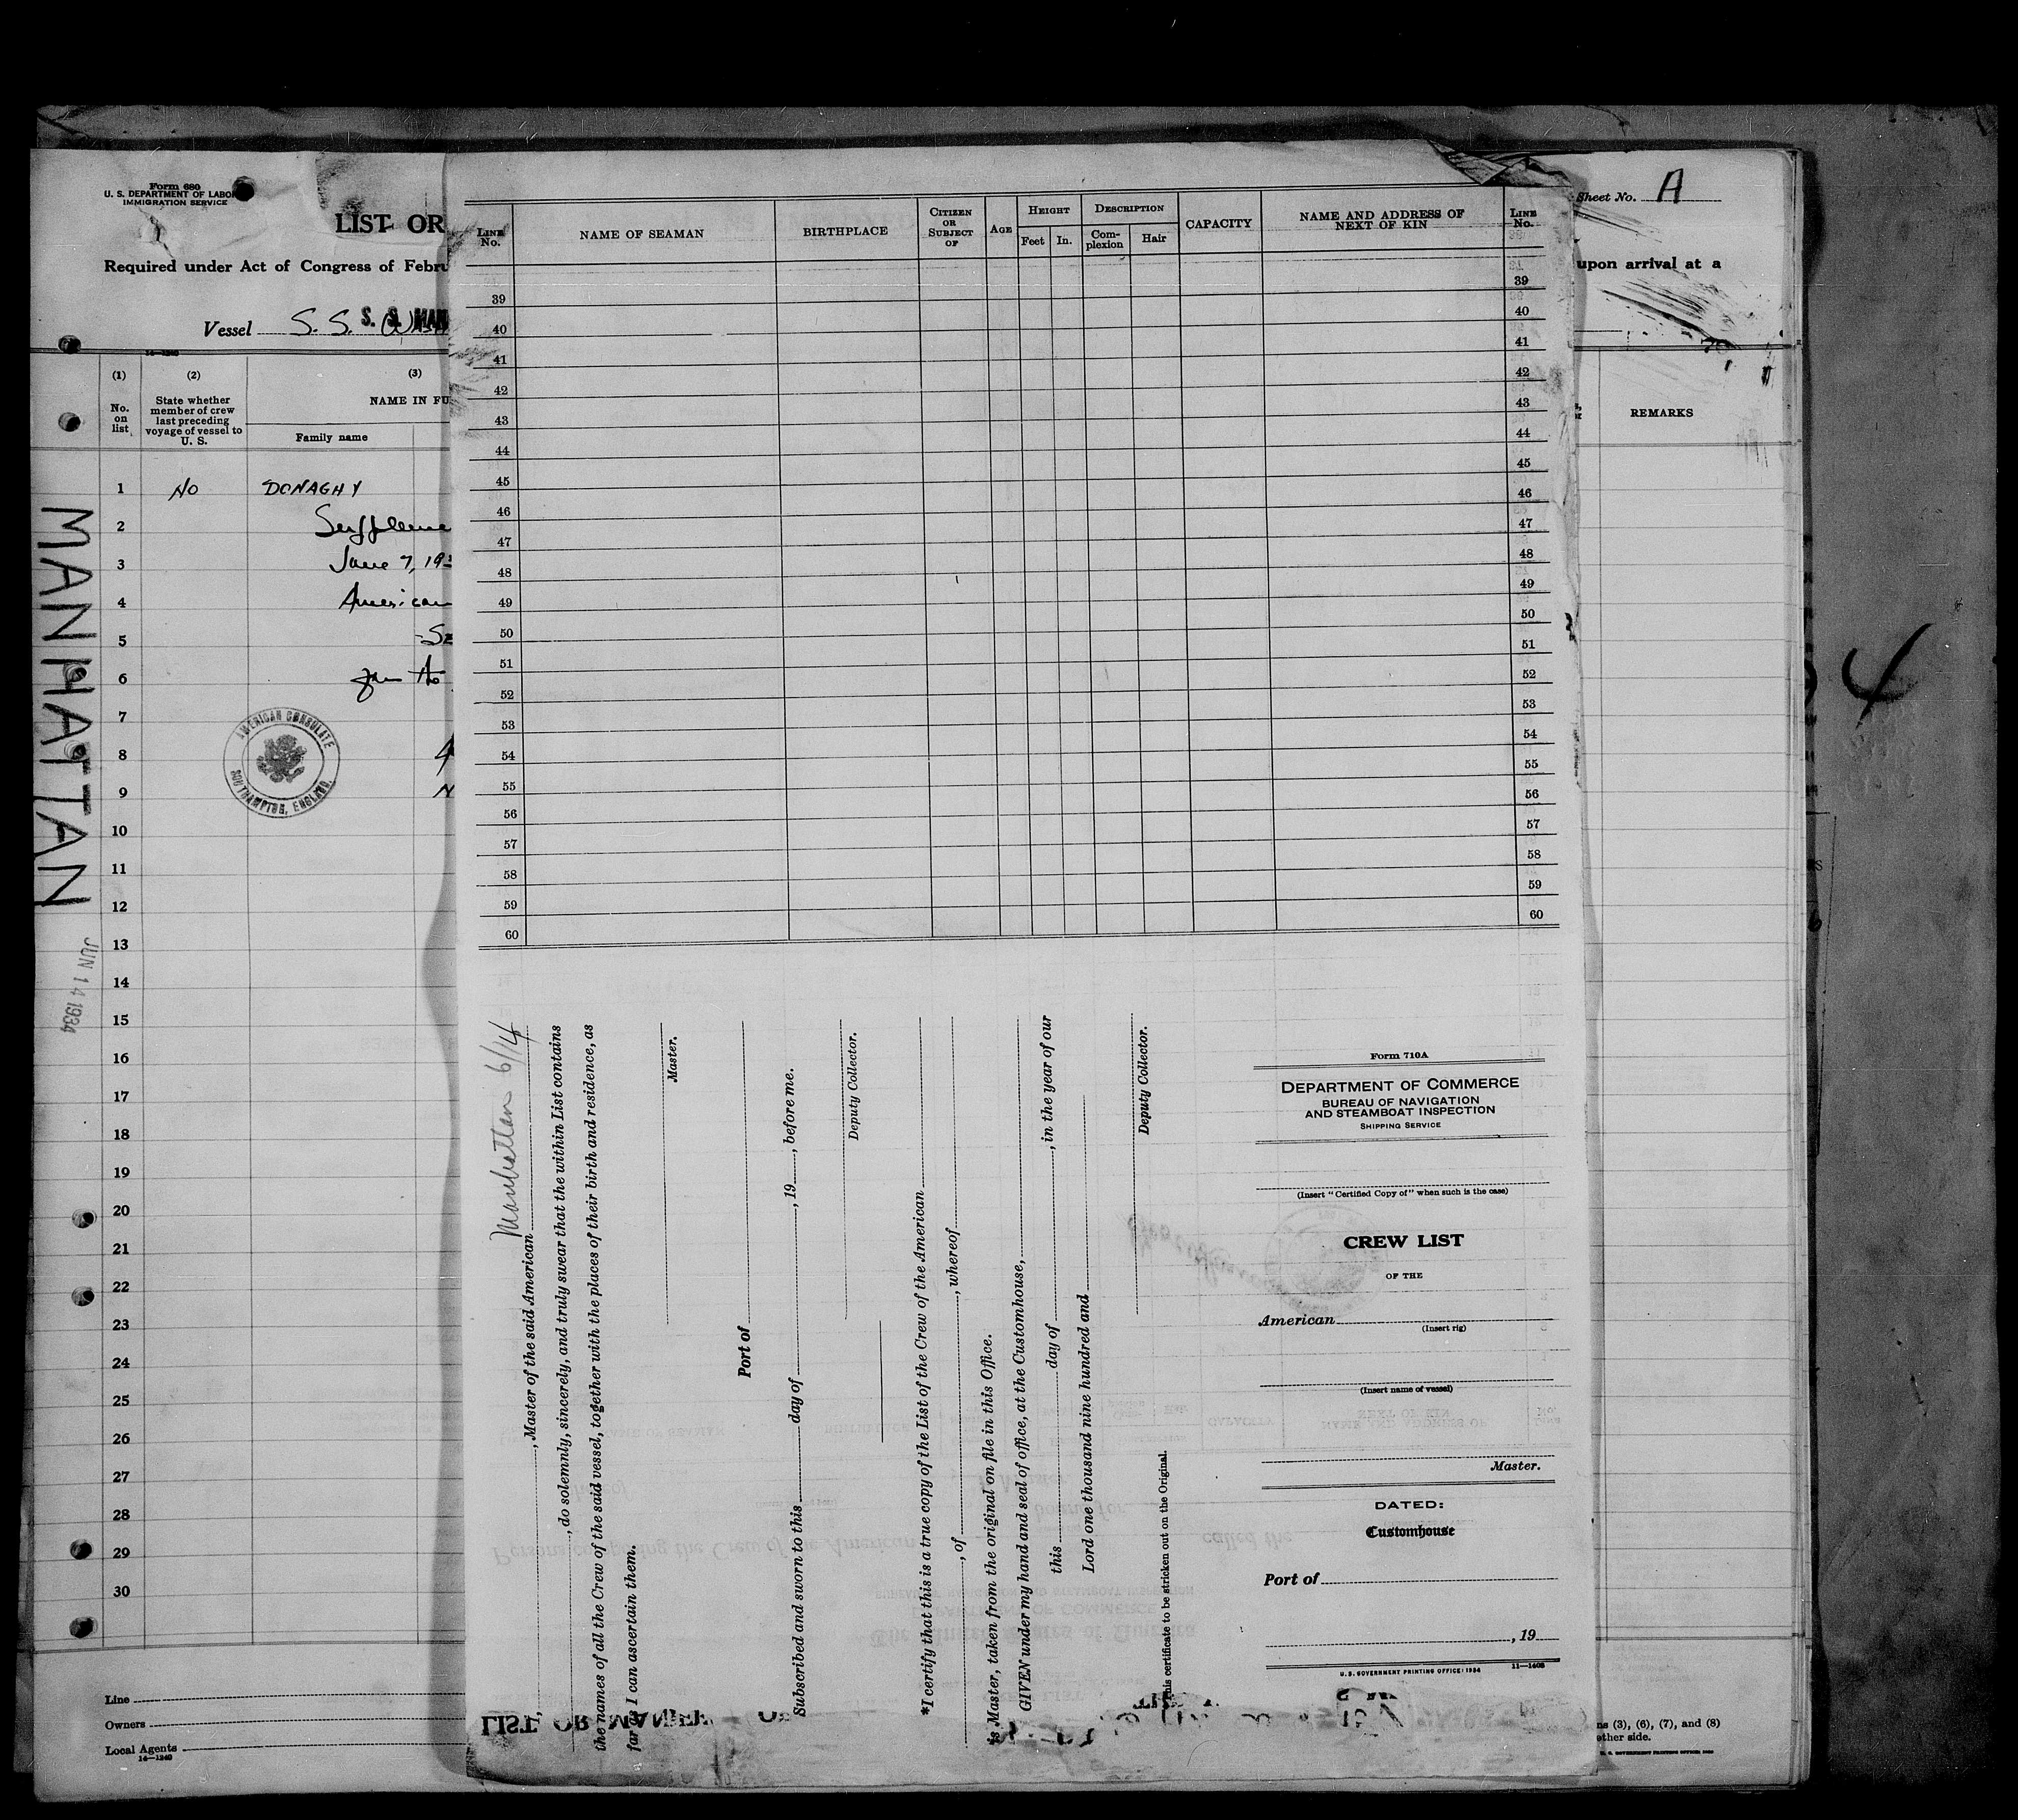 Form 680
U. S. DEPARTMENT OF LABOR
IMMIGRATION SERVICE
LIST OR
Required under Act of Congress of Febru
Vessel S. S. S. S. MAN
14—1240
(1) (2) (3)
No. on list
State whether member of crew last preceding voyage of vessel to U. S.
NAME IN FU
Family name
1 No DONAGHY
2 Suppleme
3 June 7, 193
4 American
5
6
7
8
9
10
11
12
13
14
15
16
17
18
19
20
21
22
23
24
25
26
27
28
29
30
AMERICAN CONSULATE
SOUTHAMPTON, ENGLAND.
MANHATTAN
JUN 14 1934
Line
Owners
Local Agents
14—1240
LINE No.
NAME OF SEAMAN
BIRTHPLACE
CITIZEN OR SUBJECT OF
AGE
HEIGHT
Feet In.
DESCRIPTION
Complexion Hair
CAPACITY
NAME AND ADDRESS OF NEXT OF KIN
LINE No.
39 39
40 40
41 41
42 42
43 43
44 44
45 45
46 46
47 47
48 48
49 49
50 50
51 51
52 52
53 53
54 54
55 55
56 56
57 57
58 58
59 59
60 60
Manhattan 6/14
, Master of the said American
, do solemnly, sincerely, and truly swear that the within List contains
the names of all the Crew of the said vessel, together with the places of their birth and residence, as
far as I can ascertain them.
Master.
Port of
Subscribed and sworn to this day of , 19 , before me.
Deputy Collector.
*I certify that this is a true copy of the List of the Crew of the American
, of , whereof
is Master, taken from the original on file in this Office.
GIVEN under my hand and seal of office, at the Customhouse,
this day of , in the year of our
Lord one thousand nine hundred and
Deputy Collector.
This certificate to be stricken out on the Original.
Form 710A
DEPARTMENT OF COMMERCE
BUREAU OF NAVIGATION
AND STEAMBOAT INSPECTION
SHIPPING SERVICE
(Insert "Certified Copy of" when such is the case)
CREW LIST
OF THE
American
(Insert rig)
(Insert name of vessel)
Master.
DATED:
Customhouse
Port of
, 19
U. S. GOVERNMENT PRINTING OFFICE: 1934 11—1408
LIST, OR
Sheet No. A
upon arrival at a
REMARKS
4
ns (3), (6), (7), and (8)
other side.